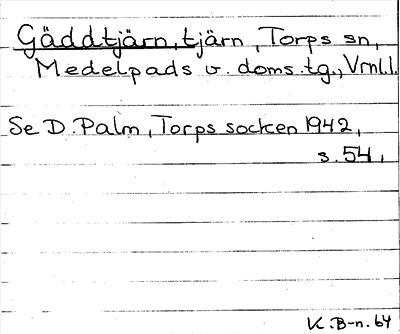 Gäddtjärn, tjärn, Torps sn,
Medelpads v. doms.tg., Vrnl.l.
Se D. Palm, Torps socken 1942,
s. 54.
K. B-n. 64